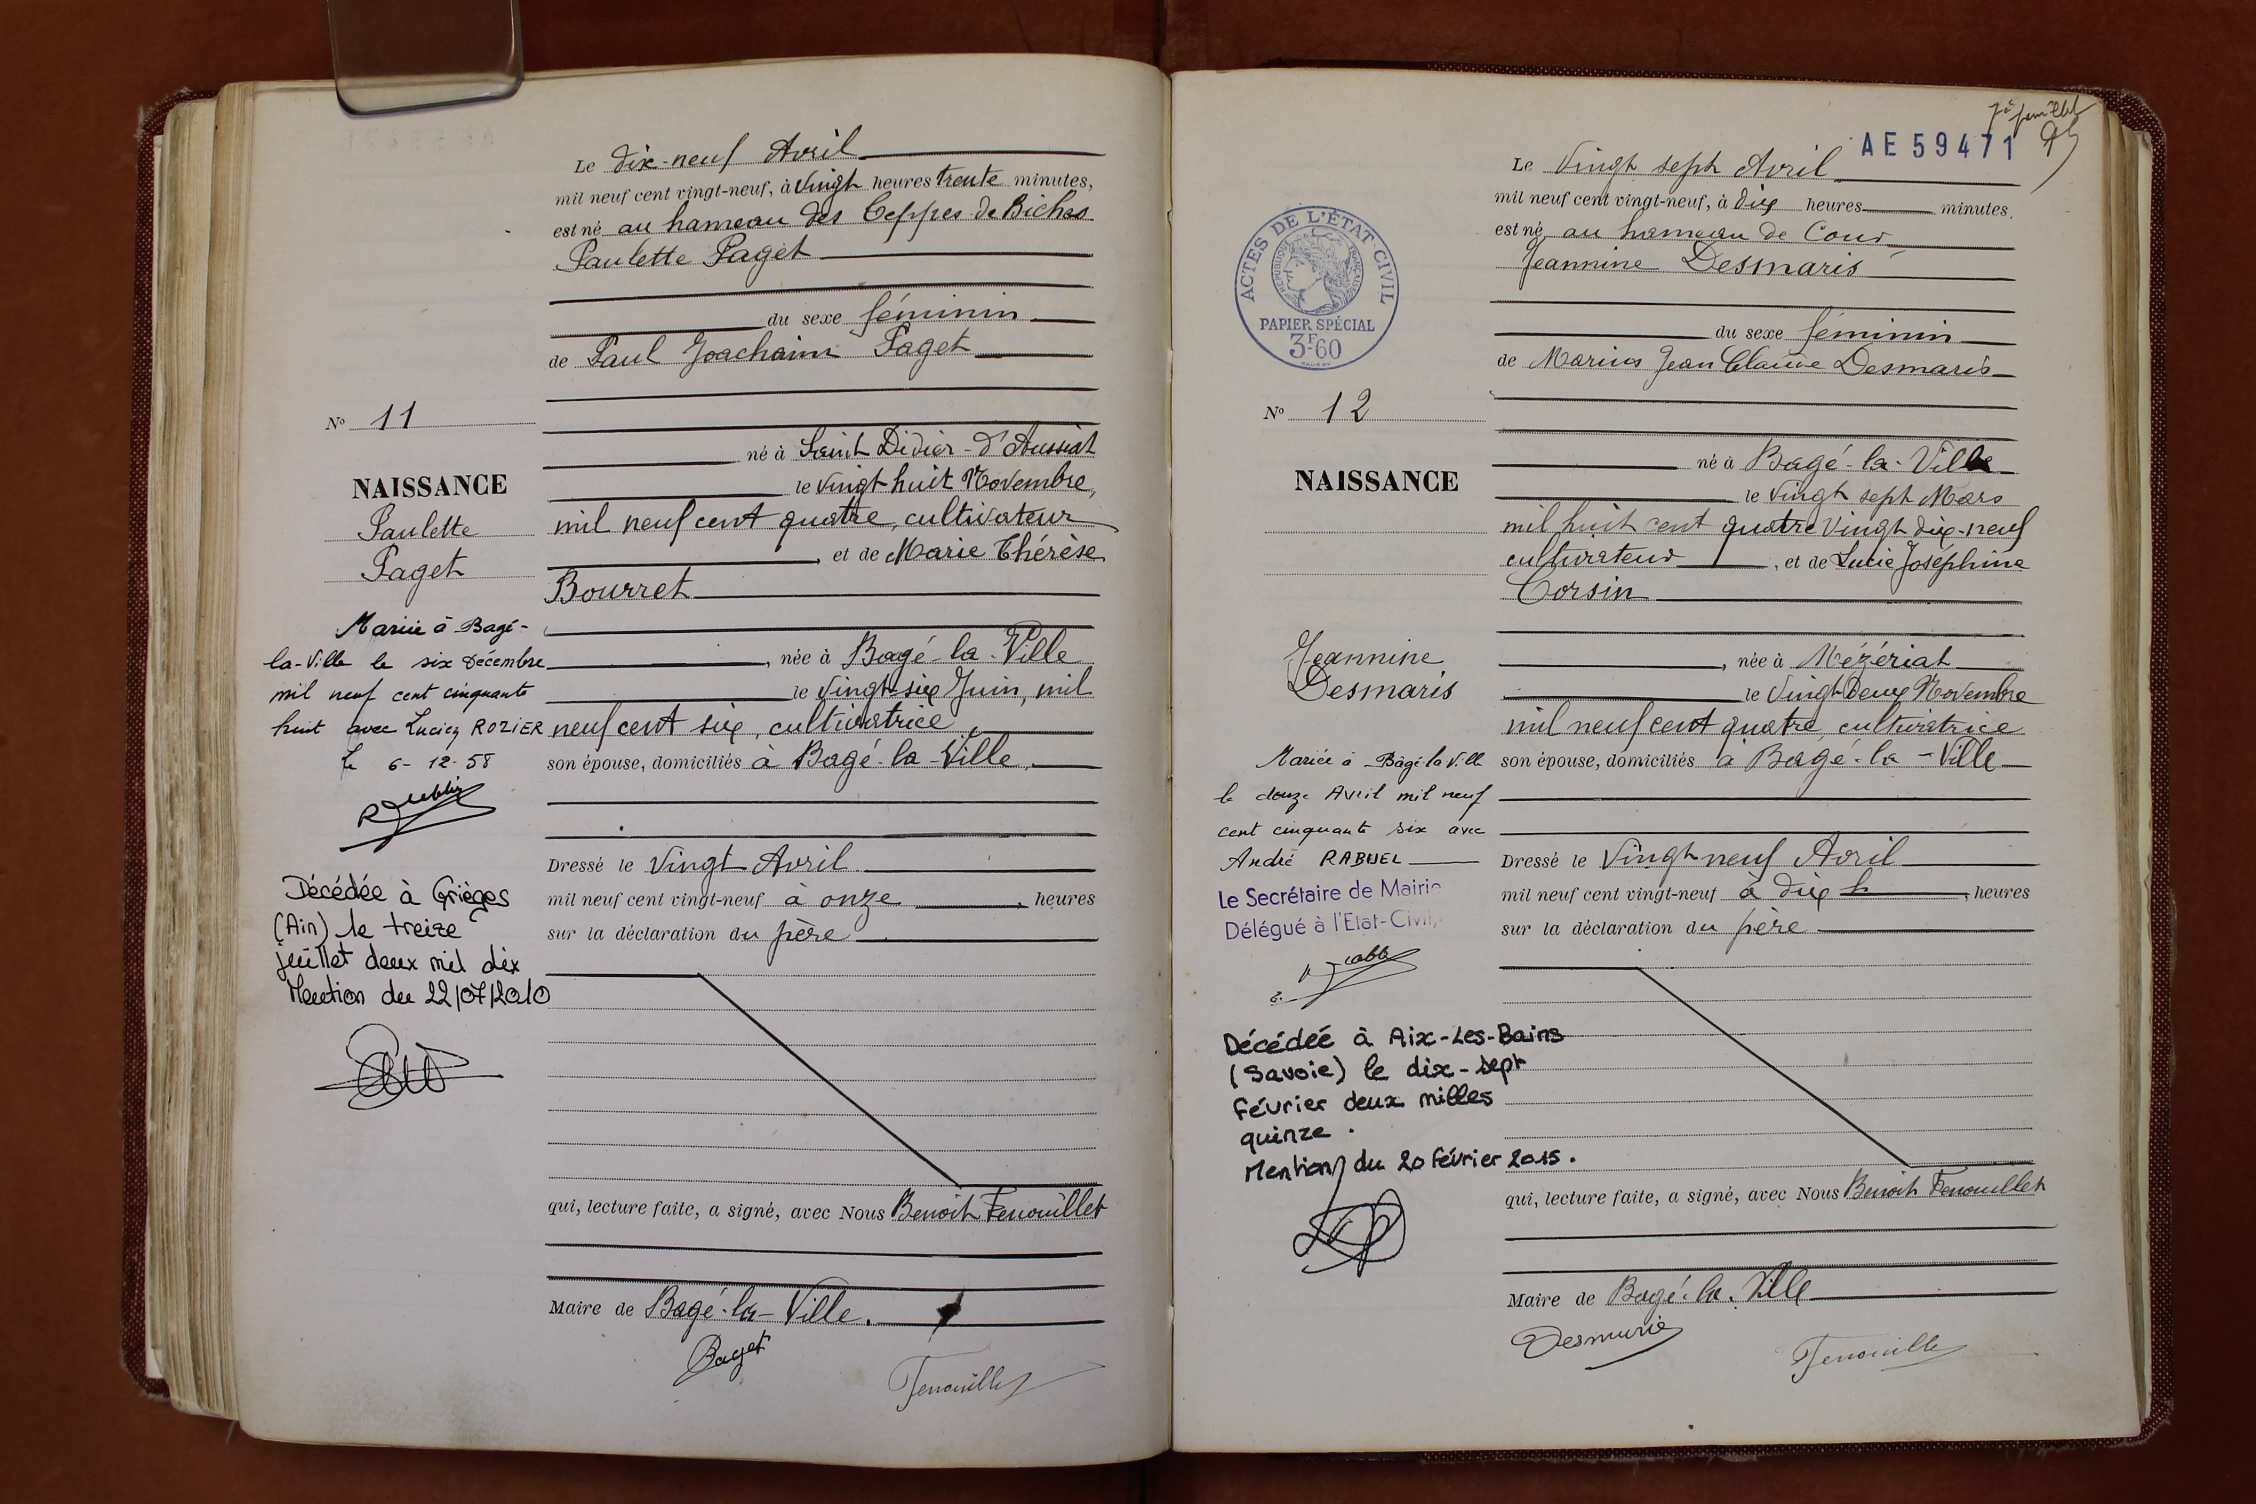 Le dix-neuf Avril
mil neuf cent vingt-neuf, à vingt heures trente minutes,
est né au hameau des Ceppes de Biches
Paulette Paget
du sexe féminin
de Paul Joachaim Paget
N° 11
né à Saint Didier-d'Aussiat
NAISSANCE
le vingt-huit Novembre,
Paulette
mil neuf cent quatre, cultivateur
Paget
, et de Marie Thérèse
Bourret
Mariée à Bagé-
la-Ville le six décembre
, née à Bagé-la-Ville
mil neuf cent cinquante
le vingt-six Juin, mil
huit avec Lucien ROZIER
neuf cent six, cultivatrice
le 6-12-58
son épouse, domiciliés à Bagé-la-Ville,
Dressé le vingt Avril
Décédée à Grièges
mil neuf cent vingt-neuf à onze , heures
(Ain) le treize
sur la déclaration du père
juillet deux mil dix
Mention du 22/07/2010
qui, lecture faite, a signé, avec Nous Benoit Fenouillet
Maire de Bagé-la-Ville.
Paget
Fenouillet
7è feuillet
AE59471
Le vingt sept Avril
mil neuf cent vingt-neuf, à dix heures minutes,
ACTES DE L'ÉTAT-CIVIL
RÉPUBLIQUE FRANÇAISE
PAPIER SPÉCIAL
3F60
est né au hameau de Cour
Jeannine Desmaris
du sexe féminin
de Marius Jean Claude Desmaris
N° 12
né à Bagé-la-Ville
NAISSANCE
le vingt sept Mars
mil huit cent quatre vingt dix-neuf
cultivateur , et de Lucie Joséphine
Corsin
Jeannine
Desmaris
, née à Mézériat
le vingt deux Novembre
mil neuf cent quatre cultivatrice
son épouse, domiciliés à Bagé-la-Ville
Mariée à Bagé la Ville
le douze Avril mil neuf
cent cinquante six avec
André RABUEL
Le Secrétaire de Mairie
Délégué à l'Etat-Civil,
Dressé le vingt neuf Avril
mil neuf cent vingt-neuf à dix h , heures
sur la déclaration du père
Décédéé à Aix-Les-Bains
(Savoie) le dix-sept
février deux milles
quinze.
Mention du 20 février 2015.
qui, lecture faite, a signé, avec Nous Benoit Fenouillet
Maire de Bagé-la-Ville
Desmaris
Fenouillet